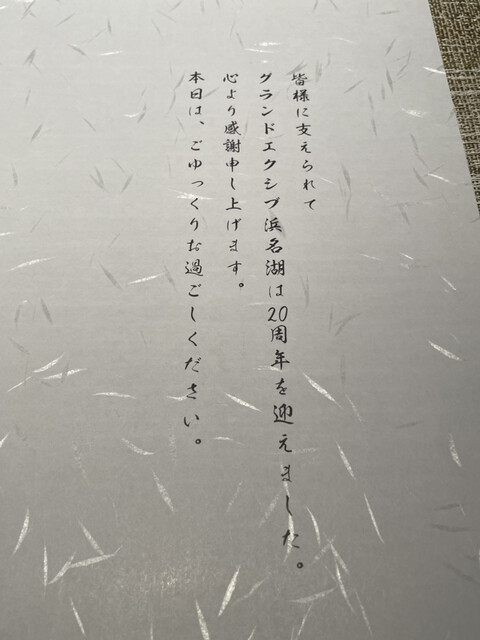 皆様に支えられて
グランドエクシブ浜名湖は20周年を迎えました。
心より感謝申し上げます。
本日は、ごゆっくりお過ごしください。